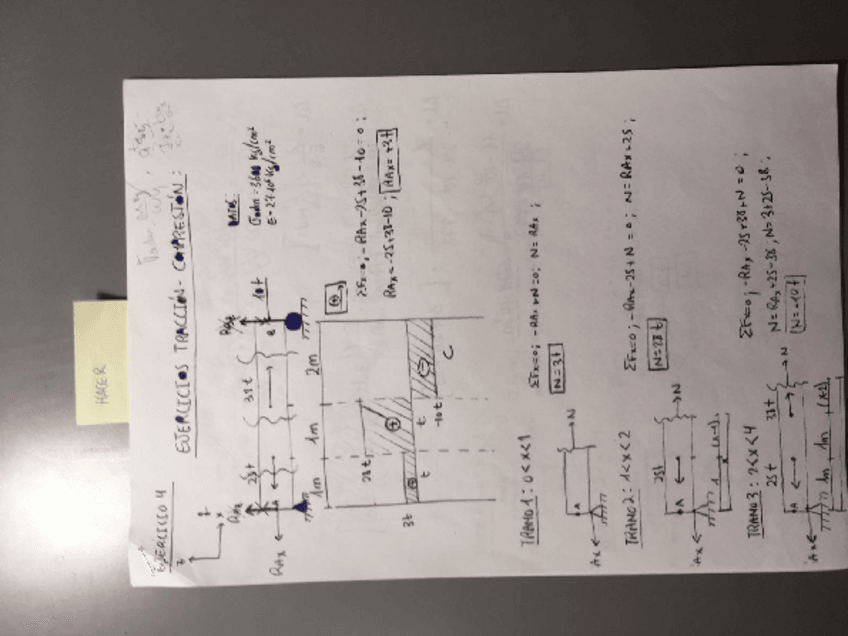 HACER
EJERCICIO 4
EJERCICIOS TRACCIÓN-COMPRESIÓN:
DATOS:
σadm=3600 Kg/cm²
E=2'1·10⁶ Kg/cm²
z
x
RAx
A
25t
38t
10t
1m
1m
2m
3t
28t
-10t
t
t
C
⊕
⊕
⊖
⊕ →
ΣFx=0; -RAx-25+38-10=0;
RAx=-25+38-10; RAx=+3t
TRAMO 1: 0<x<1
Ax
A
N
ΣFx=0; -RAx+N=0; N=RAx;
N=3t
TRAMO 2: 1<x<2
25t
Ax
A
N
1
(x-1)
ΣFx=0; -RAx-25+N=0; N=RAx+25;
N=28t
TRAMO 3: 2<x<4
25t
38t
Ax
A
N
1m
1m
(x-2)
ΣFx=0; -RAx-25+38+N=0;
N=RAx+25-38; N=3+25-38;
N=-10t